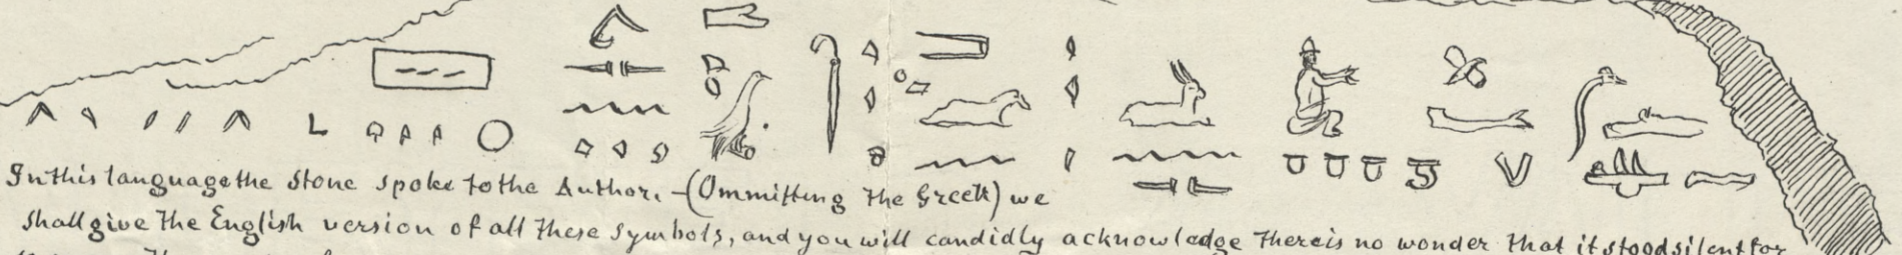 In this language the Stone spoke to the Author. -(Ommitting the Greek) we
shall give the English version of all these symbols, and you will candidly acknowledge there is no wonder that it stood silent for